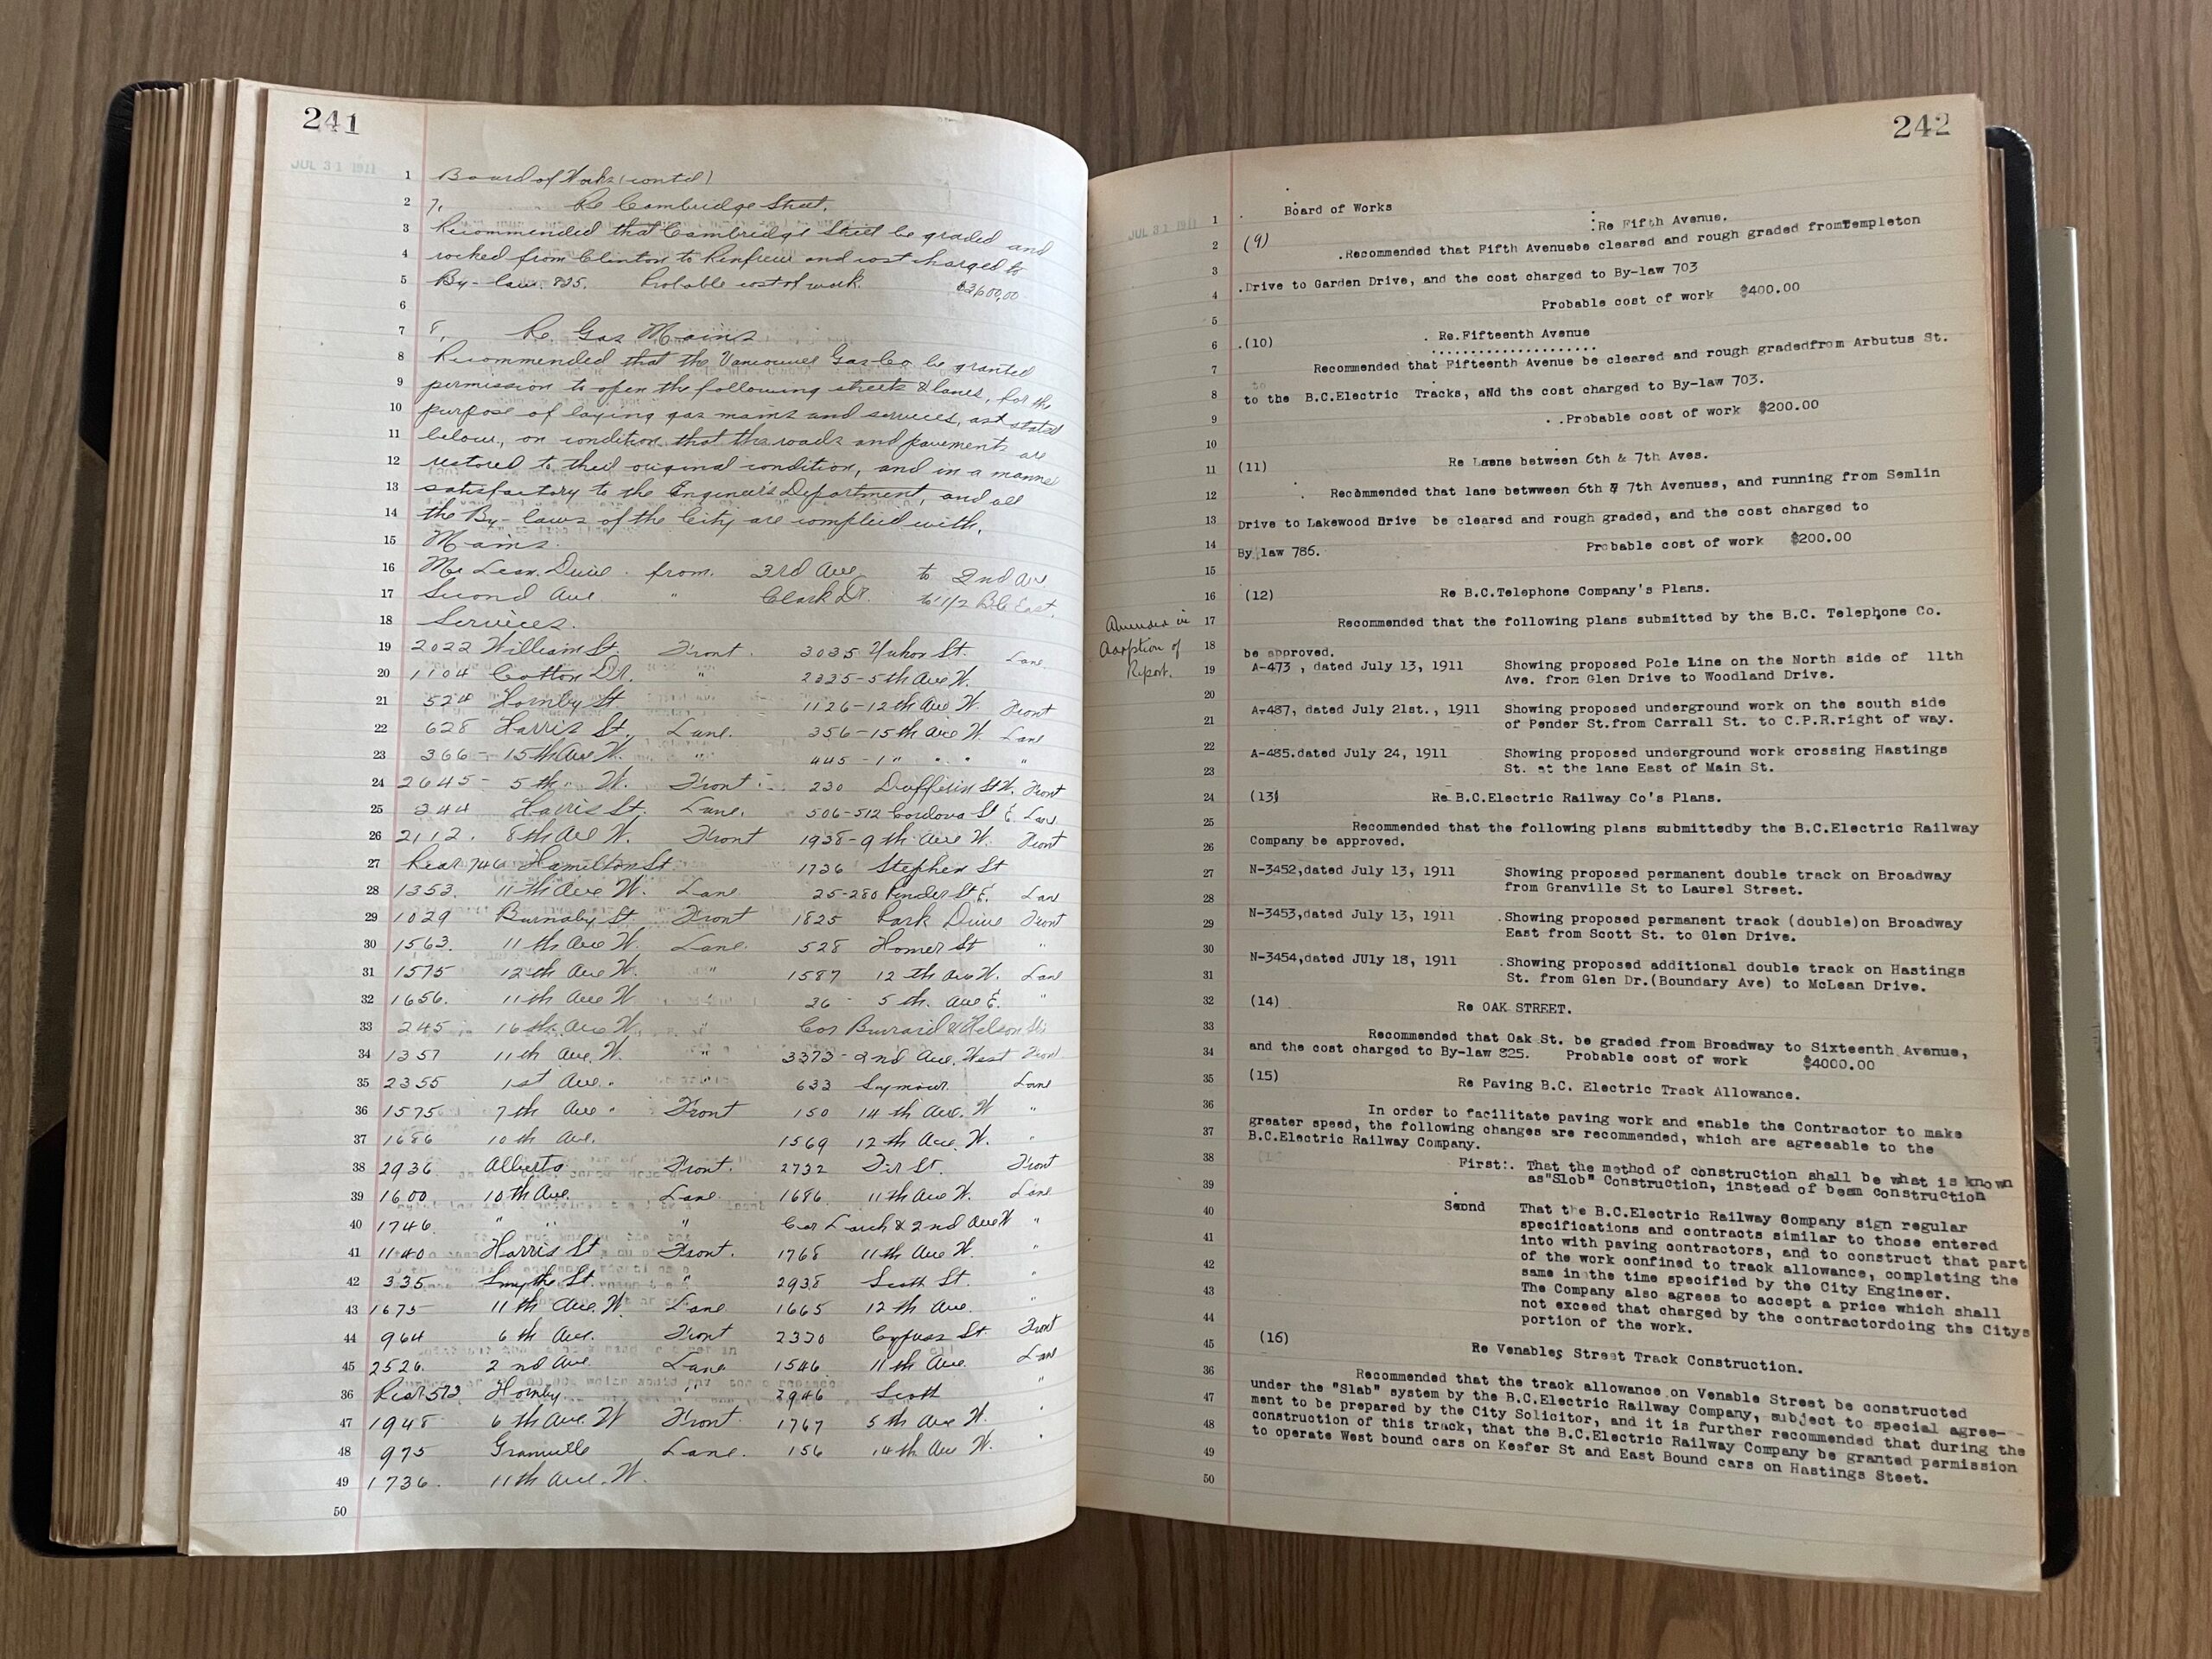 241
JUL 31 1911
1 Board of Works (contd)
2 7, Re Cambridge Street.
3 Recommended that Cambridge Street be graded and
4 rocked from Clinton to Renfrew and cost charged to
5 By-law. 825. Probable cost of work. $3600.00
6
7 8, Re. Gas Mains
8 Recommended that the Vancouver Gas Co be granted
9 permission to open the following streets & lanes, for the
10 purpose of laying gas mains and services, as stated
11 below, on condition that the roads and pavements are
12 restored to their original condition, and in a manner
13 satisfactory to the Engineer's Department, and all
14 the By-laws of the City are complied with.
15 Mains.
16 Mc Lean. Drive. from. 3rd Ave to 2nd Ave
17 Second Ave " Clark Dr. to 1/2 Blk East.
18 Services.
19 2022 William St. Front. 3035 Yukon St. Lane
20 1104 Cotton Dr. " 2335-5th Ave W.
21 524 Hornby St 1126-12th Ave W. Front
22 628 Harris St. Lane. 356-15th Ave W Lane
23 366-15th Ave W. " 445 - 1 " " " "
24 2645- 5th " W. Front 230 Dufferin St W. Front
25 344 Harris St. Lane. 506-512 Cordova St E. Lane
26 2112. 8th Ave W. Front 1938-9th Ave W. Front
27 Rear 746 Hamilton St 1736 Stephen St
28 1353. 11th Ave W. Lane 25-280 Pender St E. Lane
29 1029 Burnaby St Front 1825 Park Drive Front
30 1563. 11th Ave W. Lane. 528 Homer St "
31 1575 12th Ave W. " 1587 12th Ave W. Lane
32 1656. 11th Ave W 26 5th. Ave E. "
33 245 16th Ave W. " Cor Burrard & Nelson Sts
34 1357 11th Ave. W. " 3373-2nd Ave. West Front
35 2355 1st Ave. " 633 Seymour. Lane
36 1575 7th Ave " Front 150 14th Ave. W "
37 1686 10th Ave. 1569 12th Ave. W. "
38 2936 Alberta Front. 2732 Fir St. Front
39 1600 10th Ave. Lane. 1686. 11th Ave W. Lane
40 1746. " " " Cor Larch & 2nd Ave W "
41 1140 Harris St. Front. 1768 11th Ave W. "
42 335 Smythe St. " 2938 Scott St. "
43 1675 11th Ave. W. Lane 1665 12th Ave. "
44 964 6th Ave. Front 2330 Cypress St Front
45 2526. 2nd Ave Lane 1546 11th Ave. Lane
36 Rear 573 Hornby " 2946 Scott "
47 1948 6th Ave. W Front 1767 5th Ave W. "
48 975 Granville Lane. 156 14th Ave W. "
49 1736. 11th Ave. W.
50
242
JUL 31 1911
1 Board of Works
Re Fifth Avenue.
2 (9) Recommended that Fifth Avenuebe cleared and rough graded fromTempleton
3 Drive to Garden Drive, and the cost charged to By-law 703
4 Probable cost of work $400.00
5
6 (10) Re.Fifteenth Avenue
7 Recommended that Fifteenth Avenue be cleared and rough gradedfrom Arbutus St.
8 to the B.C.Electric Tracks, aNd the cost charged to By-law 703.
9 Probable cost of work $200.00
10
11 (11) Re Laene between 6th & 7th Aves.
12 Recommended that lane betwween 6th & 7th Avenues, and running from Semlin
13 Drive to Lakewood Drive be cleared and rough graded, and the cost charged to
14 By law 786. Probable cost of work $200.00
15
16 (12) Re B.C.Telephone Company's Plans.
17 Recommended that the following plans submitted by the B.C. Telephone Co.
Amended in
Adoption of
Report.
18 be approved.
19 A-473 , dated July 13, 1911 Showing proposed Pole Line on the North side of 11th
Ave. from Glen Drive to Woodland Drive.
20
21 A-487, dated July 21st., 1911 Showing proposed underground work on the south side
of Pender St.from Carrall St. to C.P.R.right of way.
22 A-485.dated July 24, 1911 Showing proposed underground work crossing Hastings
23 St. at the lane East of Main St.
24 (13) Re B.C.Electric Railway Co's Plans.
25 Recommended that the following plans submittedby the B.C.Electric Railway
26 Company be approved.
27 N-3452,dated July 13, 1911 Showing proposed permanent double track on Broadway
28 from Granville St to Laurel Street.
29 N-3453,dated July 13, 1911 .Showing proposed permanent track (double)on Broadway
East from Scott St. to Glen Drive.
30
31 N-3454,dated JUly 18, 1911 .Showing proposed additional double track on Hastings
St. from Glen Dr.(Boundary Ave) to McLean Drive.
32 (14) Re OAK STREET.
33 Recommended that Oak St. be graded from Broadway to Sixteenth Avenue,
34 and the cost charged to By-law 825. Probable cost of work $4000.00
35 (15) Re Paving B.C. Electric Track Allowance.
36 In order to facilitate paving work and enable the Contractor to make
37 greater speed, the following changes are recommended, which are agreeable to the
B.C.Electric Railway Company.
38 First:. That the method of construction shall be what is known
39 as"Slob" Construction, instead of beam construction
40 Seond That the B.C.Electric Railway Company sign regular
specifications and contracts similar to those entered
41 into with paving contractors, and to construct that part
42 of the work confined to track allowance, completing the
same in the time specified by the City Engineer.
43 The Company also agrees to accept a price which shall
44 not exceed that charged by the contractordoing the Citys
portion of the work.
45 (16) Re Venables Street Track Construction.
36 Recommended that the track allowance on Venable Street be constructed
47 under the "Slab" system by the B.C.Electric Railway Company, subject to special agree-
ment to be prepared by the City Solicitor, and it is further recommended that during the
48 construction of this track, that the B.C.Electric Railway Company be granted permission
49 to operate West bound cars on Keefer St and East Bound cars on Hastings Steet.
50